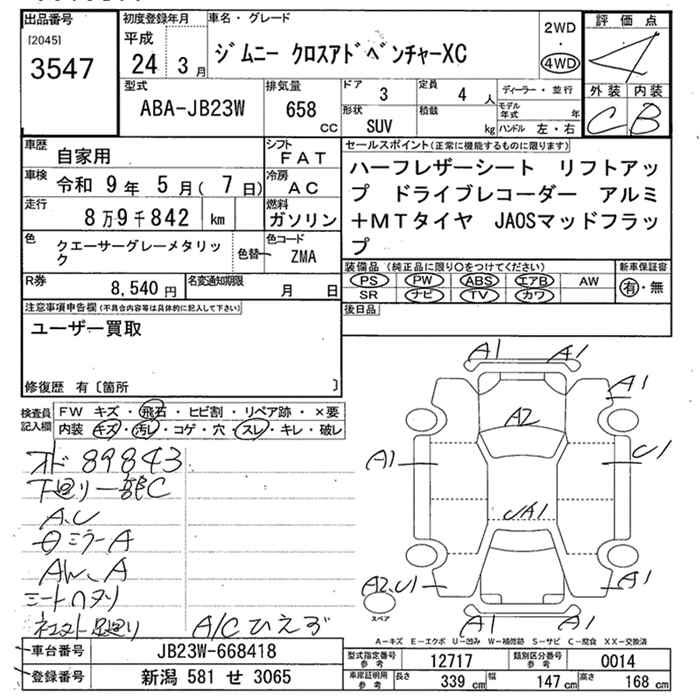 出品番号 初度登録年月 車名・グレード 2WD ・ 4WD 評価点
[2045] 平成
3547 24 3月 ジムニー クロスアドベンチャーXC 4
型式 排気量 ドア 3 定員 4人 ディーラー・並行 外装 内装
ABA-JB23W 658 cc 形状 SUV 積載 kg モデル年式 年 C B
ハンドル 左・右
車歴 自家用 シフト FAT セールスポイント(正常に機能するものに限ります)
車検 令和 9年 5月(7日) 冷房 AC ハーフレザーシート リフトアッ
プ ドライブレコーダー アルミ
走行 8万9千842 km 燃料 ガソリン +MTタイヤ JAOSマッドフラッ
プ
色 クエーサーグレーメタリッ
ク 色替 色コード ZMA
装備品(純正品に限り○をつけてください) 新車保証書
R券 8,540円 名変通知期限 月 日 PS PW ABS エアB AW 有・無
SR ナビ TV カワ
注意事項申告欄(不具合内容等は具体的に記入して下さい) 後日品
ユーザー買取
修復歴 有〔箇所 〕
検査員記入欄 FW キズ・飛石・ヒビ割・リペア跡・×要
内装 キズ・汚レ・コゲ・穴・スレ・キレ・破レ
オド 89843
下廻り一部C
A.U
ミラーA
AW、A
シートヘタリ
A/Cひえず
A1 A1
A1
A2
A1 U1
UA1
A2,U1 A1
スペア
A1 A1
A-キズ E-エクボ U-凹み W-補修跡 S-サビ C-腐食 XX-交換済
車台番号 JB23W-668418 型式指定番号 参考 12717 類別区分番号 参考 0014
登録番号 新潟 581 せ 3065 車庫証明用 参考 長さ 339cm 幅 147cm 高さ 168cm